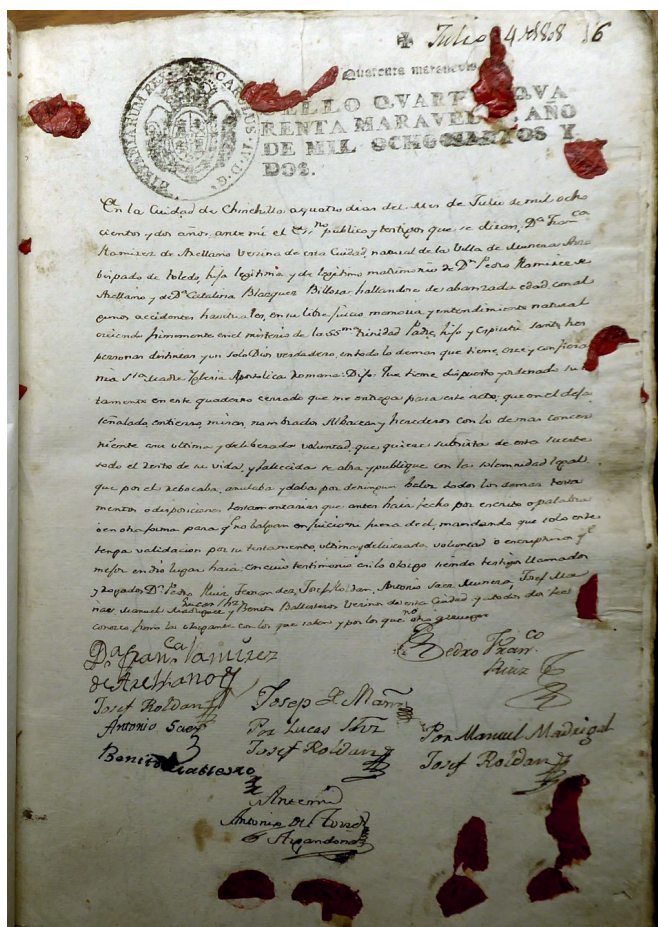 ✠ Julio 4 de 1808 16
Quarenta maravedis
SELLO QVARTO, QVA
RENTA MARAVEDIS, AÑO
DE MIL OCHOCIENTOS Y
DOS.
CAROLUS · IV · D · G · HISPANIARUM REX
En la Ciudad de Chinchilla a quatro dias del Mes de Julio de mil ocho
cientos y dos años, ante mi el Es.no publico y testigos que se diran, D.a Fran.ca
Ramirez de Arellano Vecina de esta Ciudad, natural de la Villa de Munera Arzo
bispado de Toledo, hija legitima y de legitimo matrimonio de D.n Pedro Ramirez de
Arellano y de D.a Catalina Blazquez Billora hallandose de abanzada edad, con al
gunos accidentes havituales, en su libre juicio memoria y entendimiento natural
creiendo firmemente en el misterio de la SS.ma Trinidad Padre, hijo y Espiritu Santo, tres
personas distintas y un solo Dios verdadero, en todo lo demas que tiene, cree y confiesa
nra S.ta Madre Iglesia Apostolica Romana: Dijo: Que tiene dispuesto y ordenado su tes
tamento en este quaderno cerrado que me entrega para este acto, que en el deja
señalado, entierro, misas, nombrados Albaceas y herederos con lo demas concer
niente a su ultima y deliberada voluntad, que quiere subsista de esta suerte
todo el resto de su vida, y fallecida se abra y publique con la solemnidad legal
que por el rebocaba, anulaba y daba por de ningun balor todos los demas testa
mentos o disposiciones testamentarias que antes haia fecho por escrito o palabra
o en otra forma para q.e no balgan en juicio ni fuera de el, mandando que solo este
tenga validacion por su testamento, ultima y deliberada voluntad o en
mejor en dro lugar haia: en cuio testimonio asi lo otorgo siendo testigos llamados
y rogados, D.n Pedro Ruiz Fernandez, Josef Roldan, Antonio Saez Munera, Josef Ma
Lucas
Manuel Madrigal y Benito Ballesteros Vecinos de esta Ciudad y a todos doi fee
conozco, firmo la otorgante con los que saben y por los que no
D.a Fran.ca Ramirez
de Arellano
Pedro Fran.co
Ruiz
Josef Roldan
Josep
Antonio Saez
Por Lucas
Josef Roldan
Por Manuel Madrigal
Josef Roldan
Benito Ballestero
Ante mi
Antonio de Torres
Arjandona